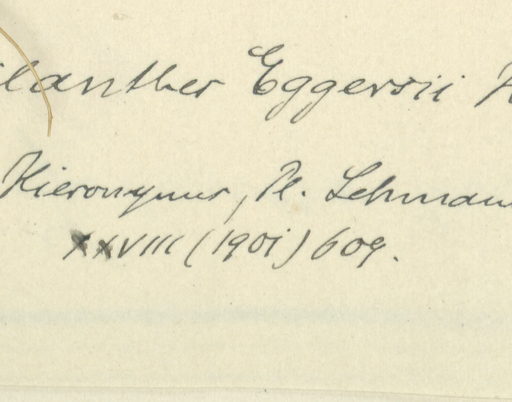 lanthes Eggersii H
Hieronymus, Pl. Lehmann
XXVIII (1901) 609.